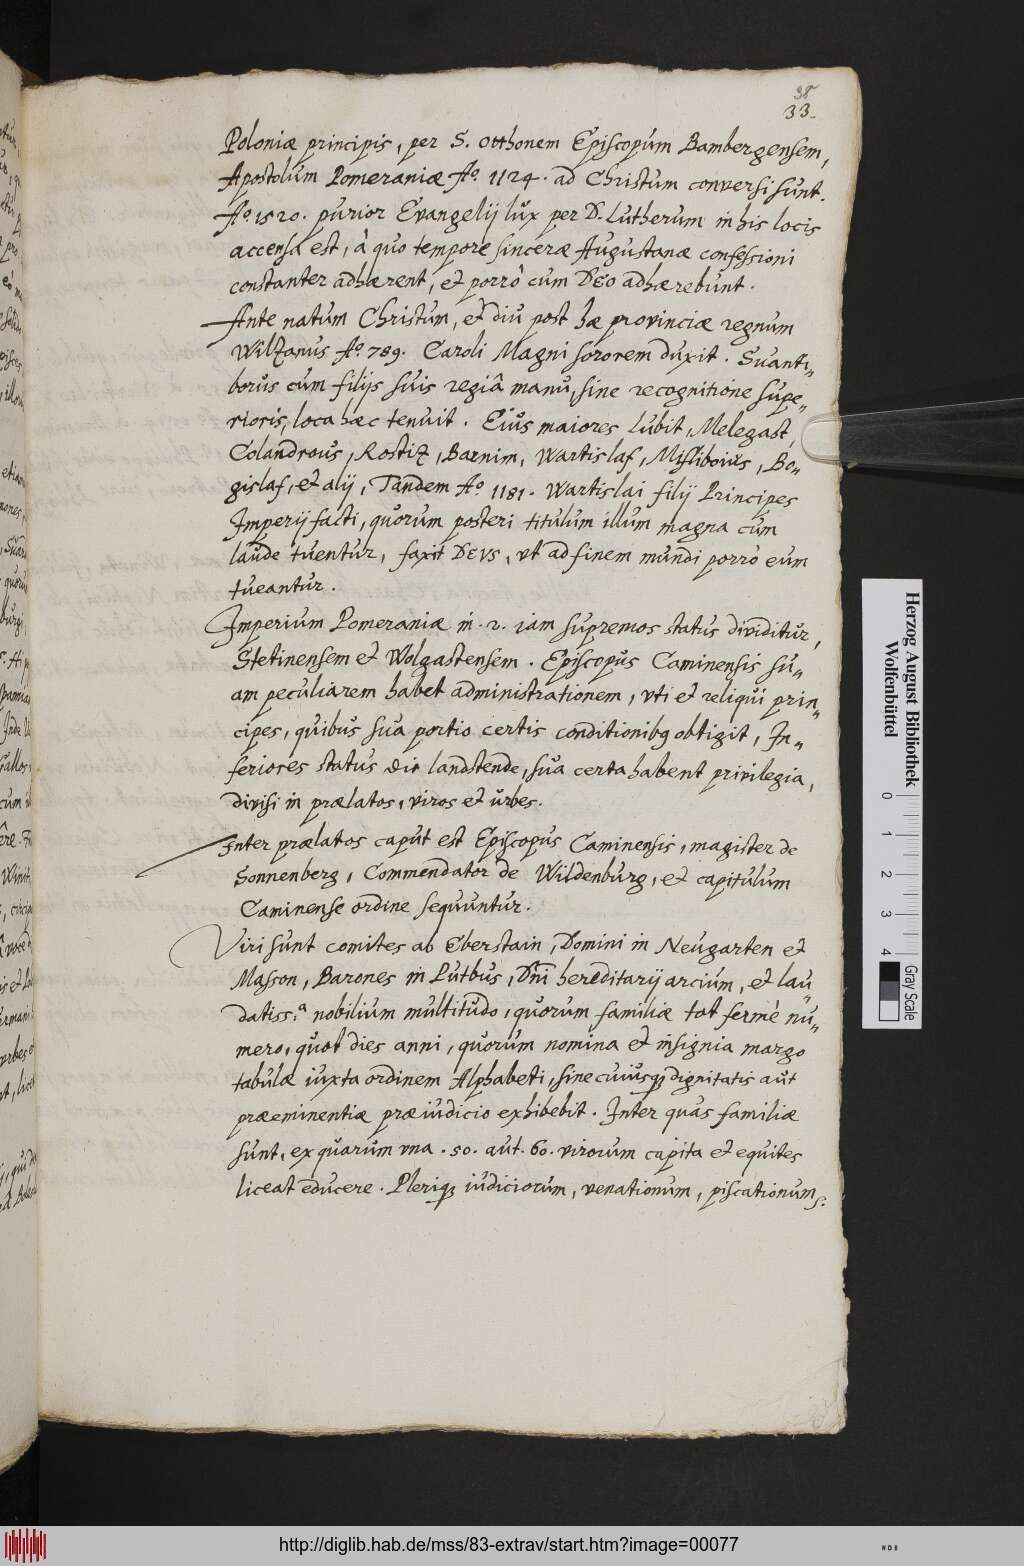 38
33.
Poloniæ principis, per S. Otthonem Episcopum Bambergensem,
Apostolum Pomeraniæ Aº. 1124. ad Christum conversi sunt.
Aº 1520. purior Evangelij lux per D. Lutherum in his locis
accensa est, à quo tempore sinceræ Augustanæ confessioni
constanter adhærent, et porrò cum DEO adhærebunt.
Ante natum Christum, et diu post hæ provinciæ regnum
Wilzanus Aº. 789. Caroli Magni sororem duxit. Suanti„
borus cum filijs suis regiâ manu, sine recognitione supe„
rioris, loca hæc tenuit. Eius maiores Lubit, Melegast,
Colandrous, Rostiz, Barnim, Wartislaf, Missiboius, Bo„
gislaf, et alij, Tandem Aº 1181. Wartislai filij Principes
Imperij facti, quorum posteri titulum illum magna cum
laude tuentur, faxit DEVS, vt ad finem mundi porrò eum
tueantur.
Imperium Pomeraniæ in .2. iam supremos status dividitur,
Stetinensem et Wolgastensem. Episcopus Caminensis su„
am peculiarem habet administrationem, vti et reliqui prin„
cipes, quibus sua portio certis conditionibꝫ obtigit, In„
feriores status die landstende, sua certa habent privilegia,
divisi in prælatos, viros et urbes.
Inter prælatos caput est Episcopus Caminensis, magister de
Sonnenberg, Commendator de Wildenburg, et capitulum
Caminense ordine sequuntur.
Viri sunt comites ab Eberstain, Domini in Neugarten et
Masson, Barones in Putbus, Dni hereditarij arcium, et lau„
datiss.ª nobilium multitudo, quorum familiæ tot fermè nu„
mero, quot dies anni, quorum nomina et insignia margo
tabulæ iuxta ordinem Alphabeti, sine cuiusqꝫ dignitatis aut
præeminentiæ præiudicio exhibebit. Inter quas familiæ
sunt, ex quarum vna .50. aut. 60. virorum capita et equites
liceat educere. Pleriqꝫ iudiciorum, venationum, piscationum
Herzog August Bibliothek
Wolfenbüttel
0 1 2 3 4
Gray Scale
http://diglib.hab.de/mss/83-extrav/start.htm?image=00077